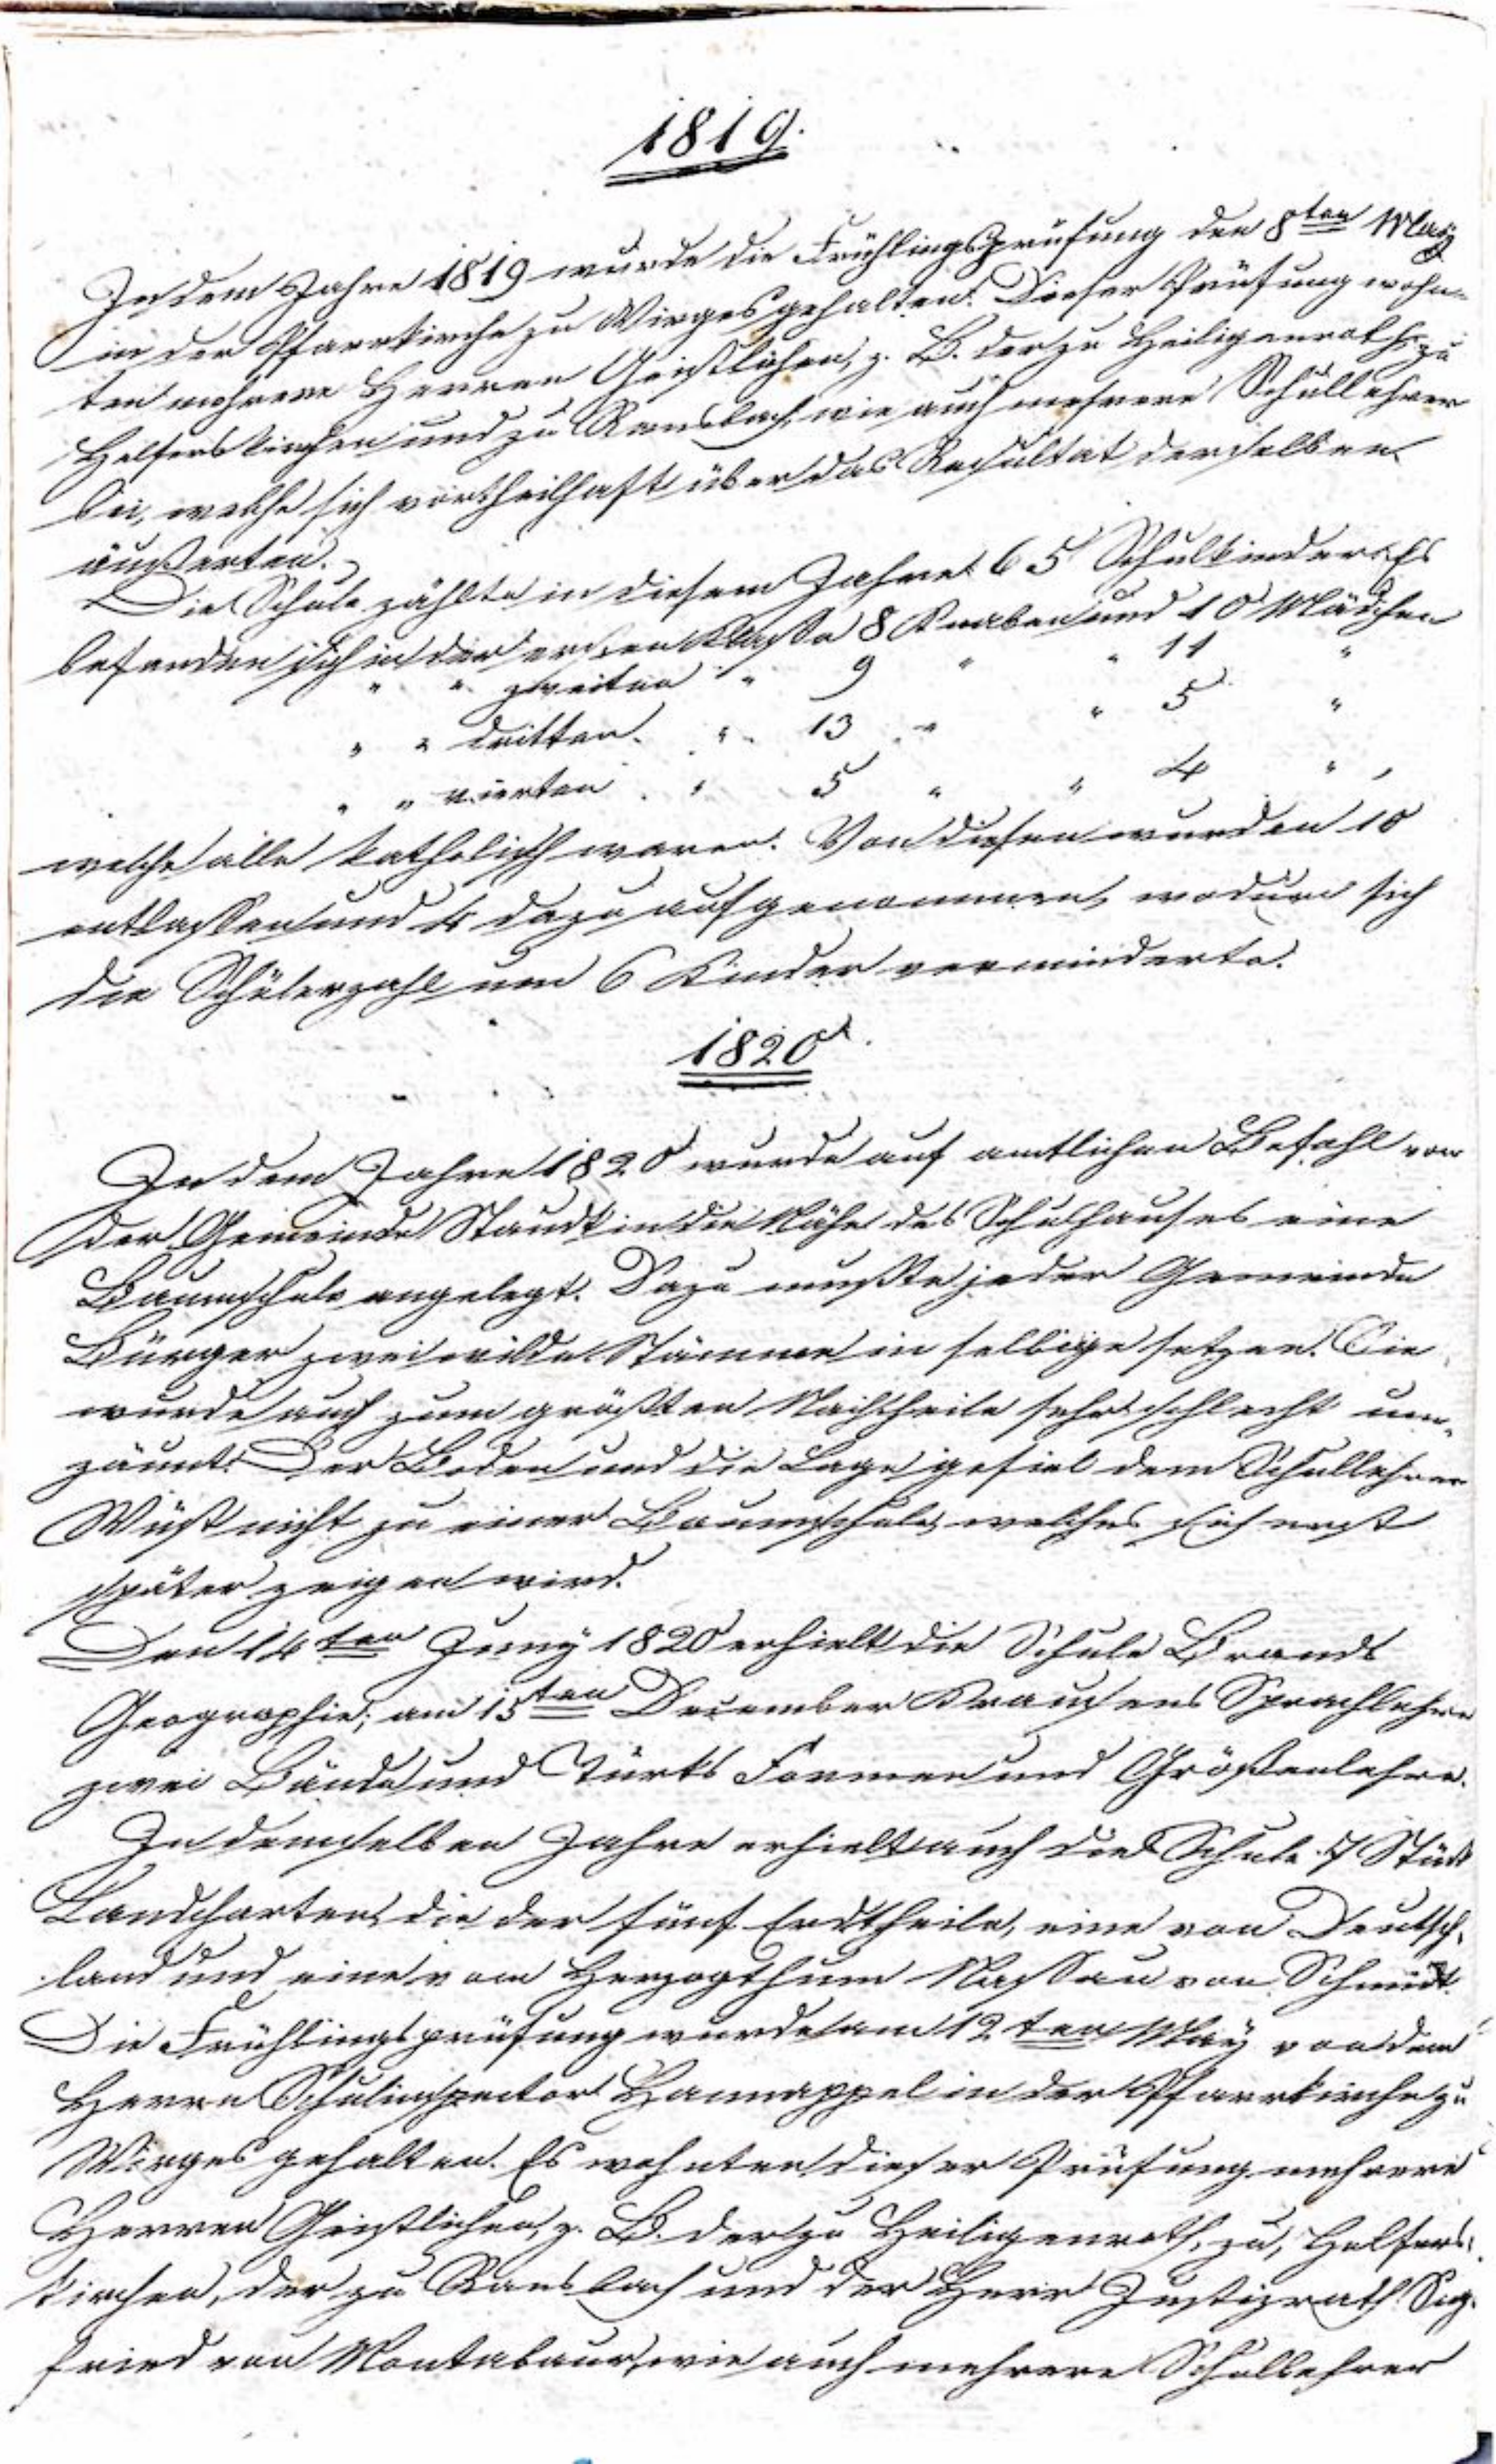 1819.
In dem Jahre 1819 wurde die Frühlingsprüfung den 8ten May
in der Pfarrkirche zu Wirges gehalten. Dieser Prüfung wohn-
ten mehrere Herren Geistlichen, z. B. der zu Heiligenroth, zu
Helferskirchen und zu Ransbach, wie auch mehrere Schullehrer
bei, welche sich vortheilhaft über das Resultat derselben
äußerten.
Die Schule zählte in diesem Jahre 65 Schulkinder. Es
befanden sich in der ersten Klasse 8 Knaben und 10 Mädchen
" " zweiten " 9 " " 11 "
" " dritten " 13 " " 5 "
" " vierten " 5 " " 4 " ,
welche alle katholisch waren. Von diesen wurden 10
entlassen und 4 dazu aufgenommen, wodurch sich
die Schülerzahl um 6 Kinder verminderte.
1820.
In dem Jahre 1820 wurde auf amtlichen Befehl von
der Gemeinde Staudt in die Nähe des Schulhauses eine
Baumschule angelegt. Dazu mußte jeder Gemeinde
Bürger zwei wilde Stämme in selbige setzen. Sie
wurde auch zum größten Nachtheile sehr schlecht um-
zäunt. Der Boden und die Lage gefiel dem Schullehrer
Wüst nicht zu einer Baumschule, welches sich erst
später zeigen wird.
Den 14ten Juny 1820 erhielt die Schule Brands
Geographie; am 15ten December Krausens Sprachlehre
zwei Bände und Türks Formen und Größenlehre.
In demselben Jahre erhielt auch die Schule 7 Stück
Landcharten, die der fünf Erdtheile, eine von Deutsch-
land und eine vom Herzogthum Nassau von Schmidt.
Die Frühlingsprüfung wurde am 12ten May von dem
Herrn Schulinspector Hannappel in der Pfarrkirche zu
Wirges gehalten. Es wohnten dieser Prüfung mehrere
Herren Geistlichen, z. B. der zu Heiligenroth, zu, Helfers-
kirchen, der zu Ransbach und der Herr Justizrath Sig-
fried von Montabaur, wie auch mehrere Schullehrer